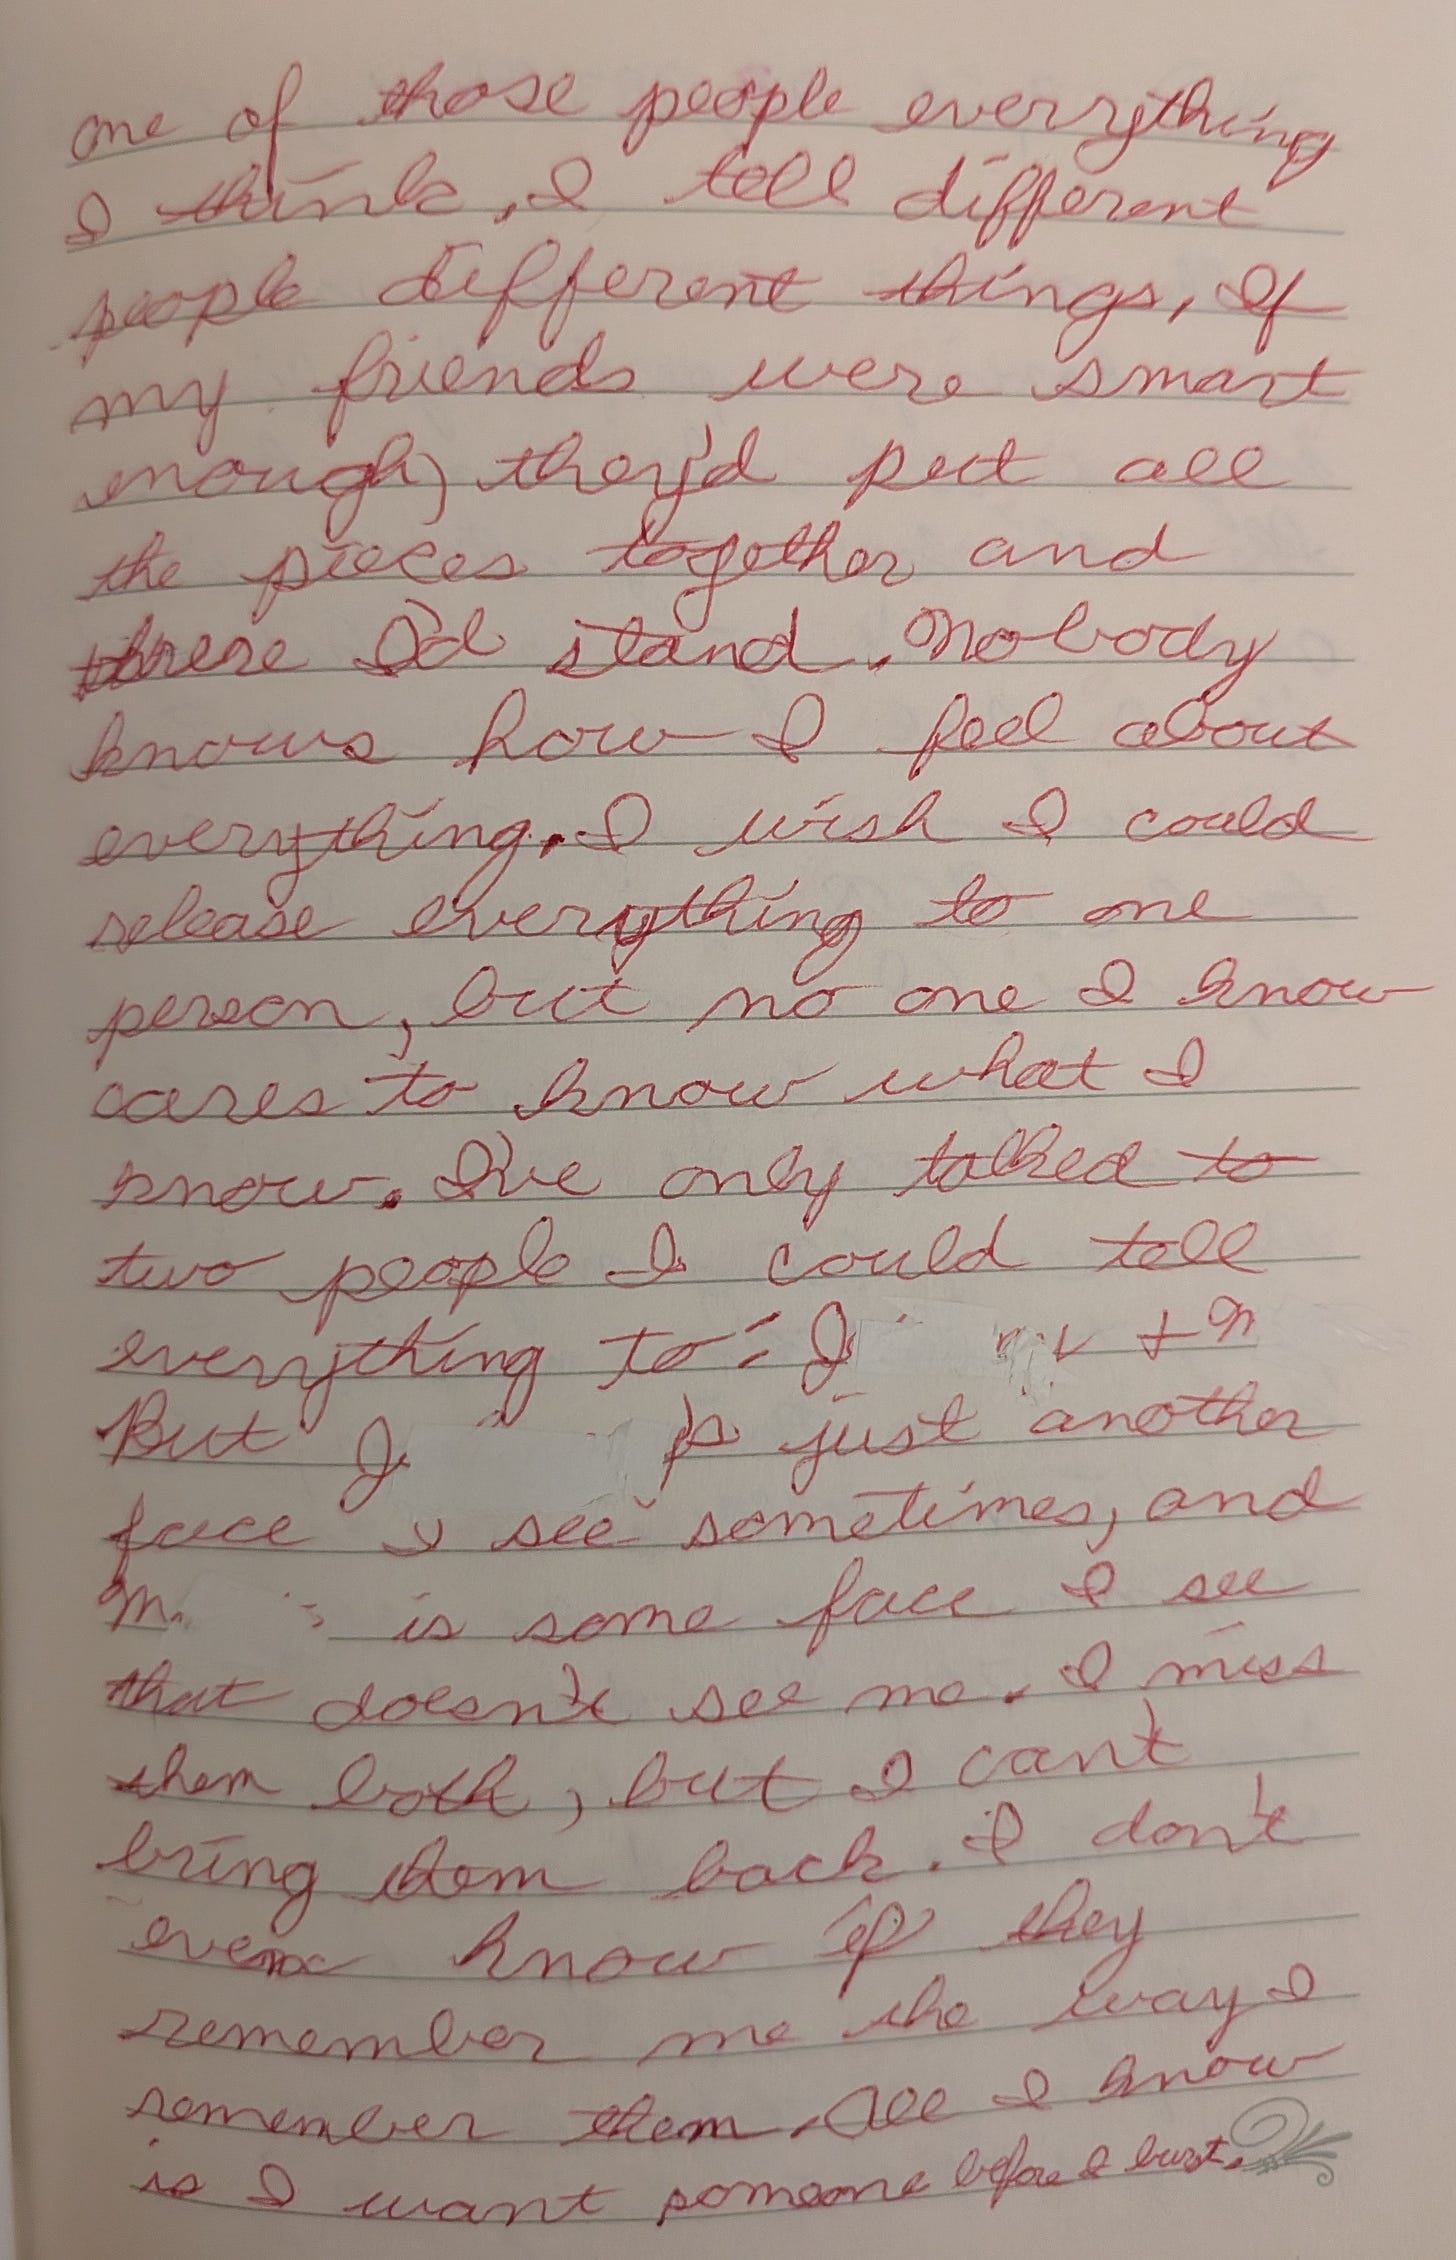 one of those people everything
I think, I tell different
people different things, If
my friends were smart
enough, they'd put all
the pieces together and
there I'd stand. Nobody
knows how I feel about
everything. I wish I could
release everything to one
person, but no one I know
cares to know what I
know. I've only talked to
two people I could tell
everything to: J + M
But J just another
face I see sometimes, and
M is some face I see
that doesn't see me. I miss
them both, but I can't
bring them back. I don't
even know if they
remember me the way I
remember them. All I know
is I want someone before I burst.